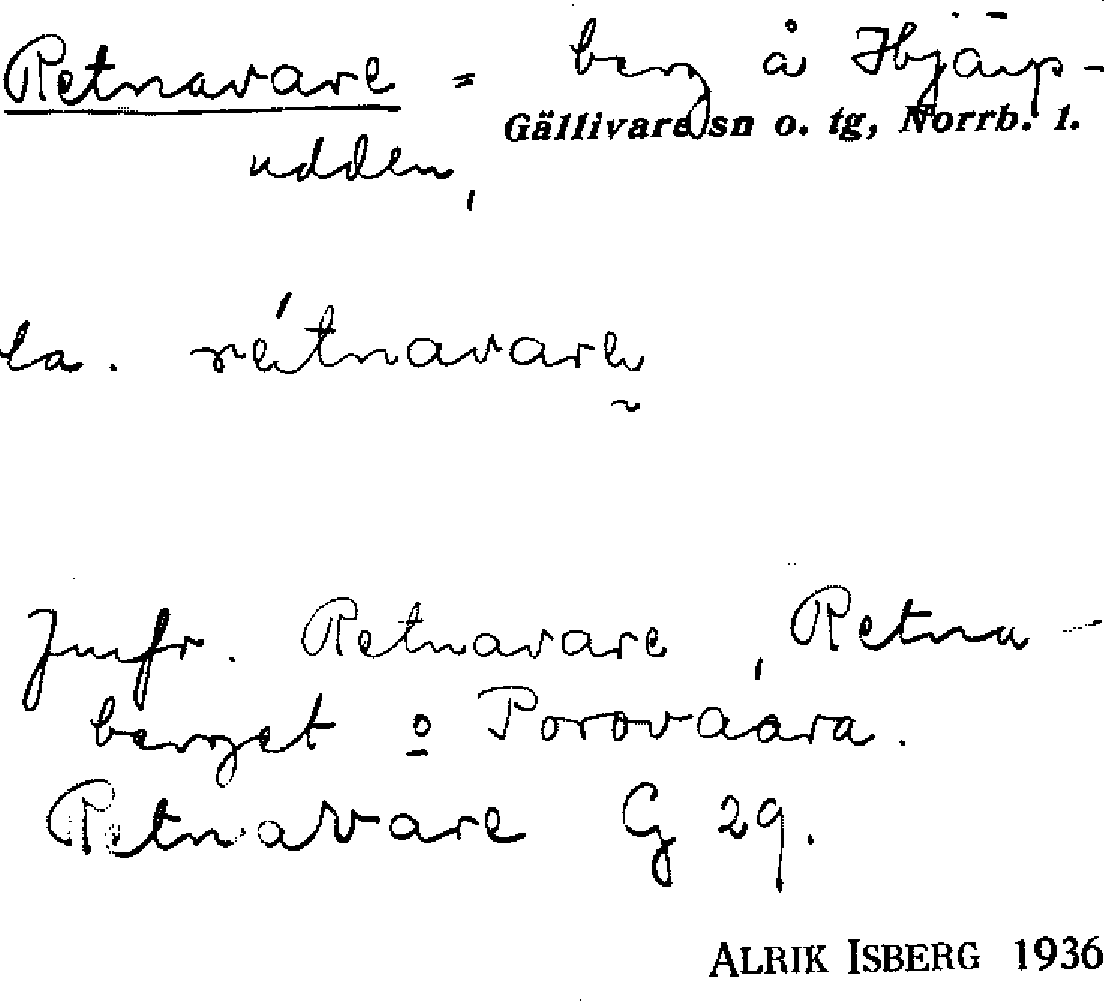 Retnavare = berg å Hjärp-
Gällivare sn o. tg, Norrb. l.
udden,
la. rétnavare
Jmfr. Retnavare, Retna-
berget o Porovaara.
Retnavare G 29.
ALRIK ISBERG 1936